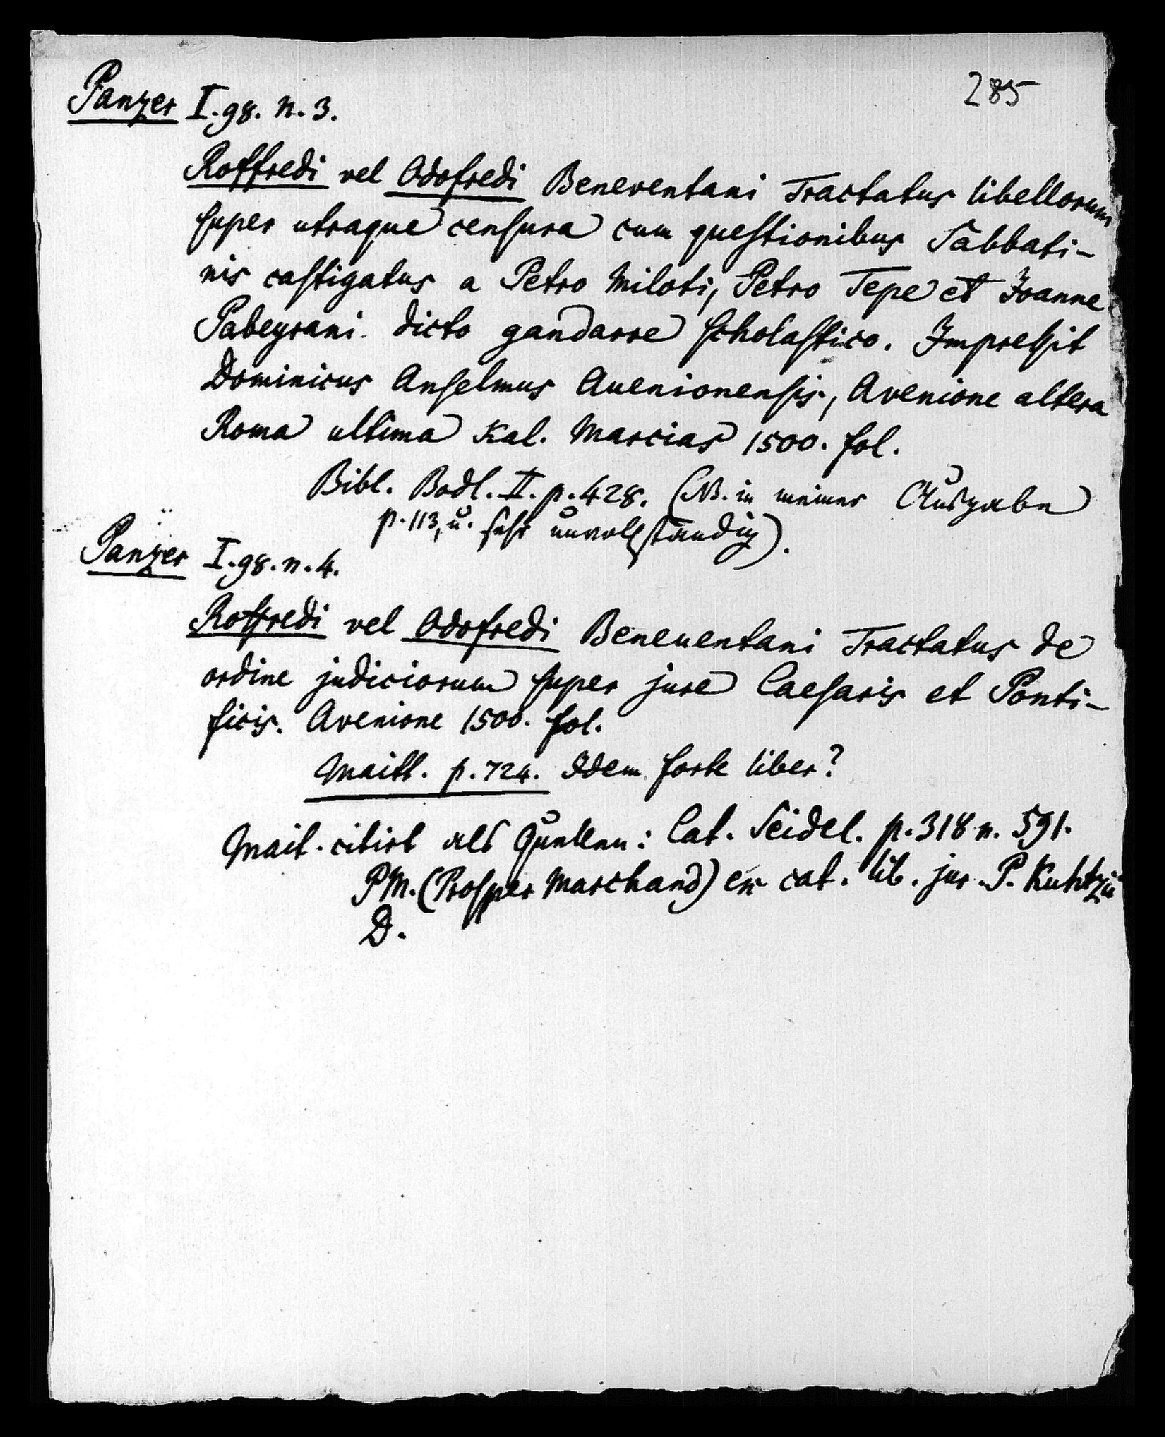 285
Panzer I.98. n. 3.
Roffredi vel Odofredi Beneventani Tractatus libellorum
super utraque censura cum questionibus Sabbati-
nis castigatus a Petro Miloti, Petro Tepe et Joanne
Pabeyrani dicto gandarre scholastico. Impressit
Dominicus Anselmus Auenionensis, Avenione altera
Roma ultima Kal. Marcias 1500. fol.
Bibl. Bodl. II. p. 428. (NB. in meiner Ausgabe
p. 113, u. sehr unvollständig).
Panzer I.98. n. 4.
Roffredi vel Odofredi Beneuentani Tractatus de
ordine judiciorum super jure Caesaris et Ponti-
ficis. Avenione 1500. fol.
Maitt. p. 724. Idem forte liber?
Mait. citirt als Quellen: Cat. Seidel. p. 318 n. 591.
PM. (Prosper Marchand) ex cat. lib. jur. P.
D.